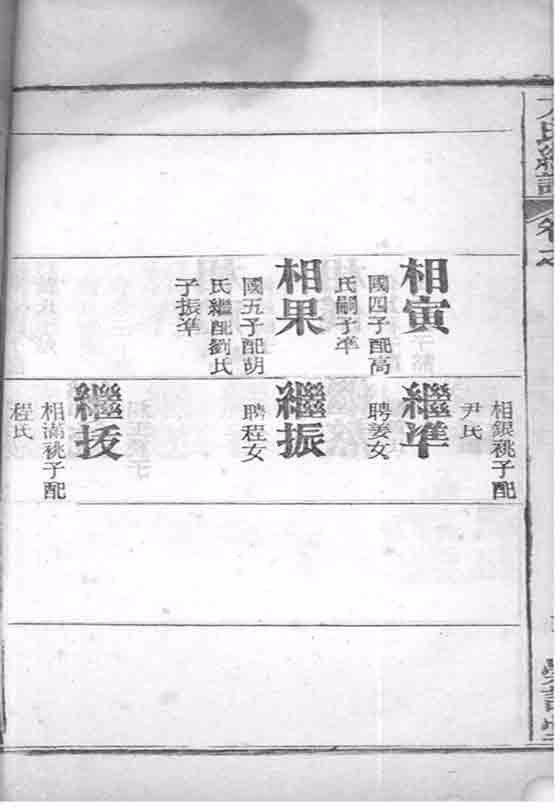 相寅
國四子配高
氏嗣子準
相果
國五子配胡
氏繼配劉氏
子振準
相銀祧子配
尹氏
繼準
聘姜女
繼振
聘程女
繼援
相滿祧子配
程氏